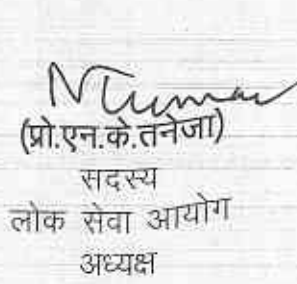 (प्रो.एन.के.तनेजा)
सदस्य
लोक सेवा आयोग
अध्यक्ष